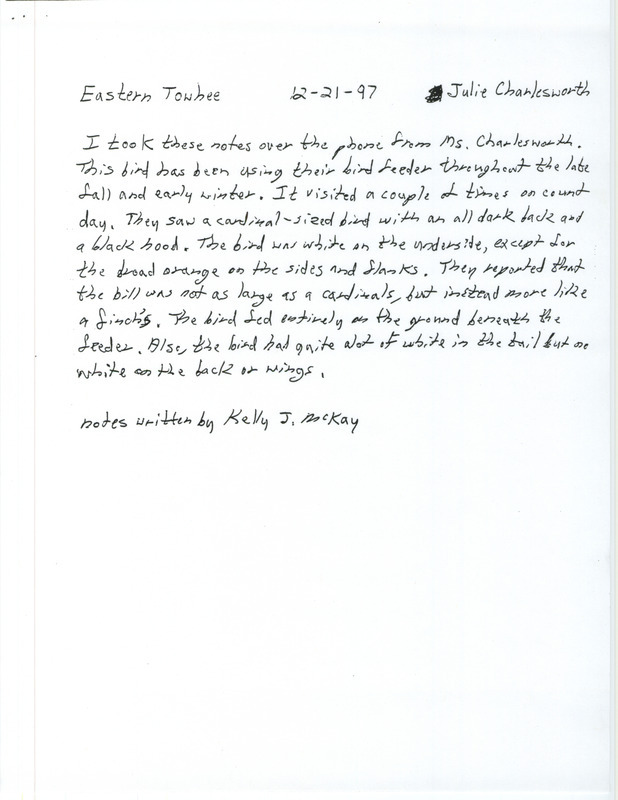 Eastern Towhee 12-21-97 Julie Charlesworth
I took these notes over the phone from Ms. Charlesworth.
This bird has been using their bird feeder throughout the late
fall and early winter. It visited a couple of times on count
day. They saw a cardinal-sized bird with an all dark back and
a black hood. The bird was white on the underside, except for
the broad orange on the sides and flanks. They reported that
the bill was not as large as a cardinals, but instead more like
a finch's. The bird fed entirely on the ground beneath the
feeder. Also, the bird had quite alot of white in the tail but no
white on the back or wings.
notes written by Kelly J. McKay